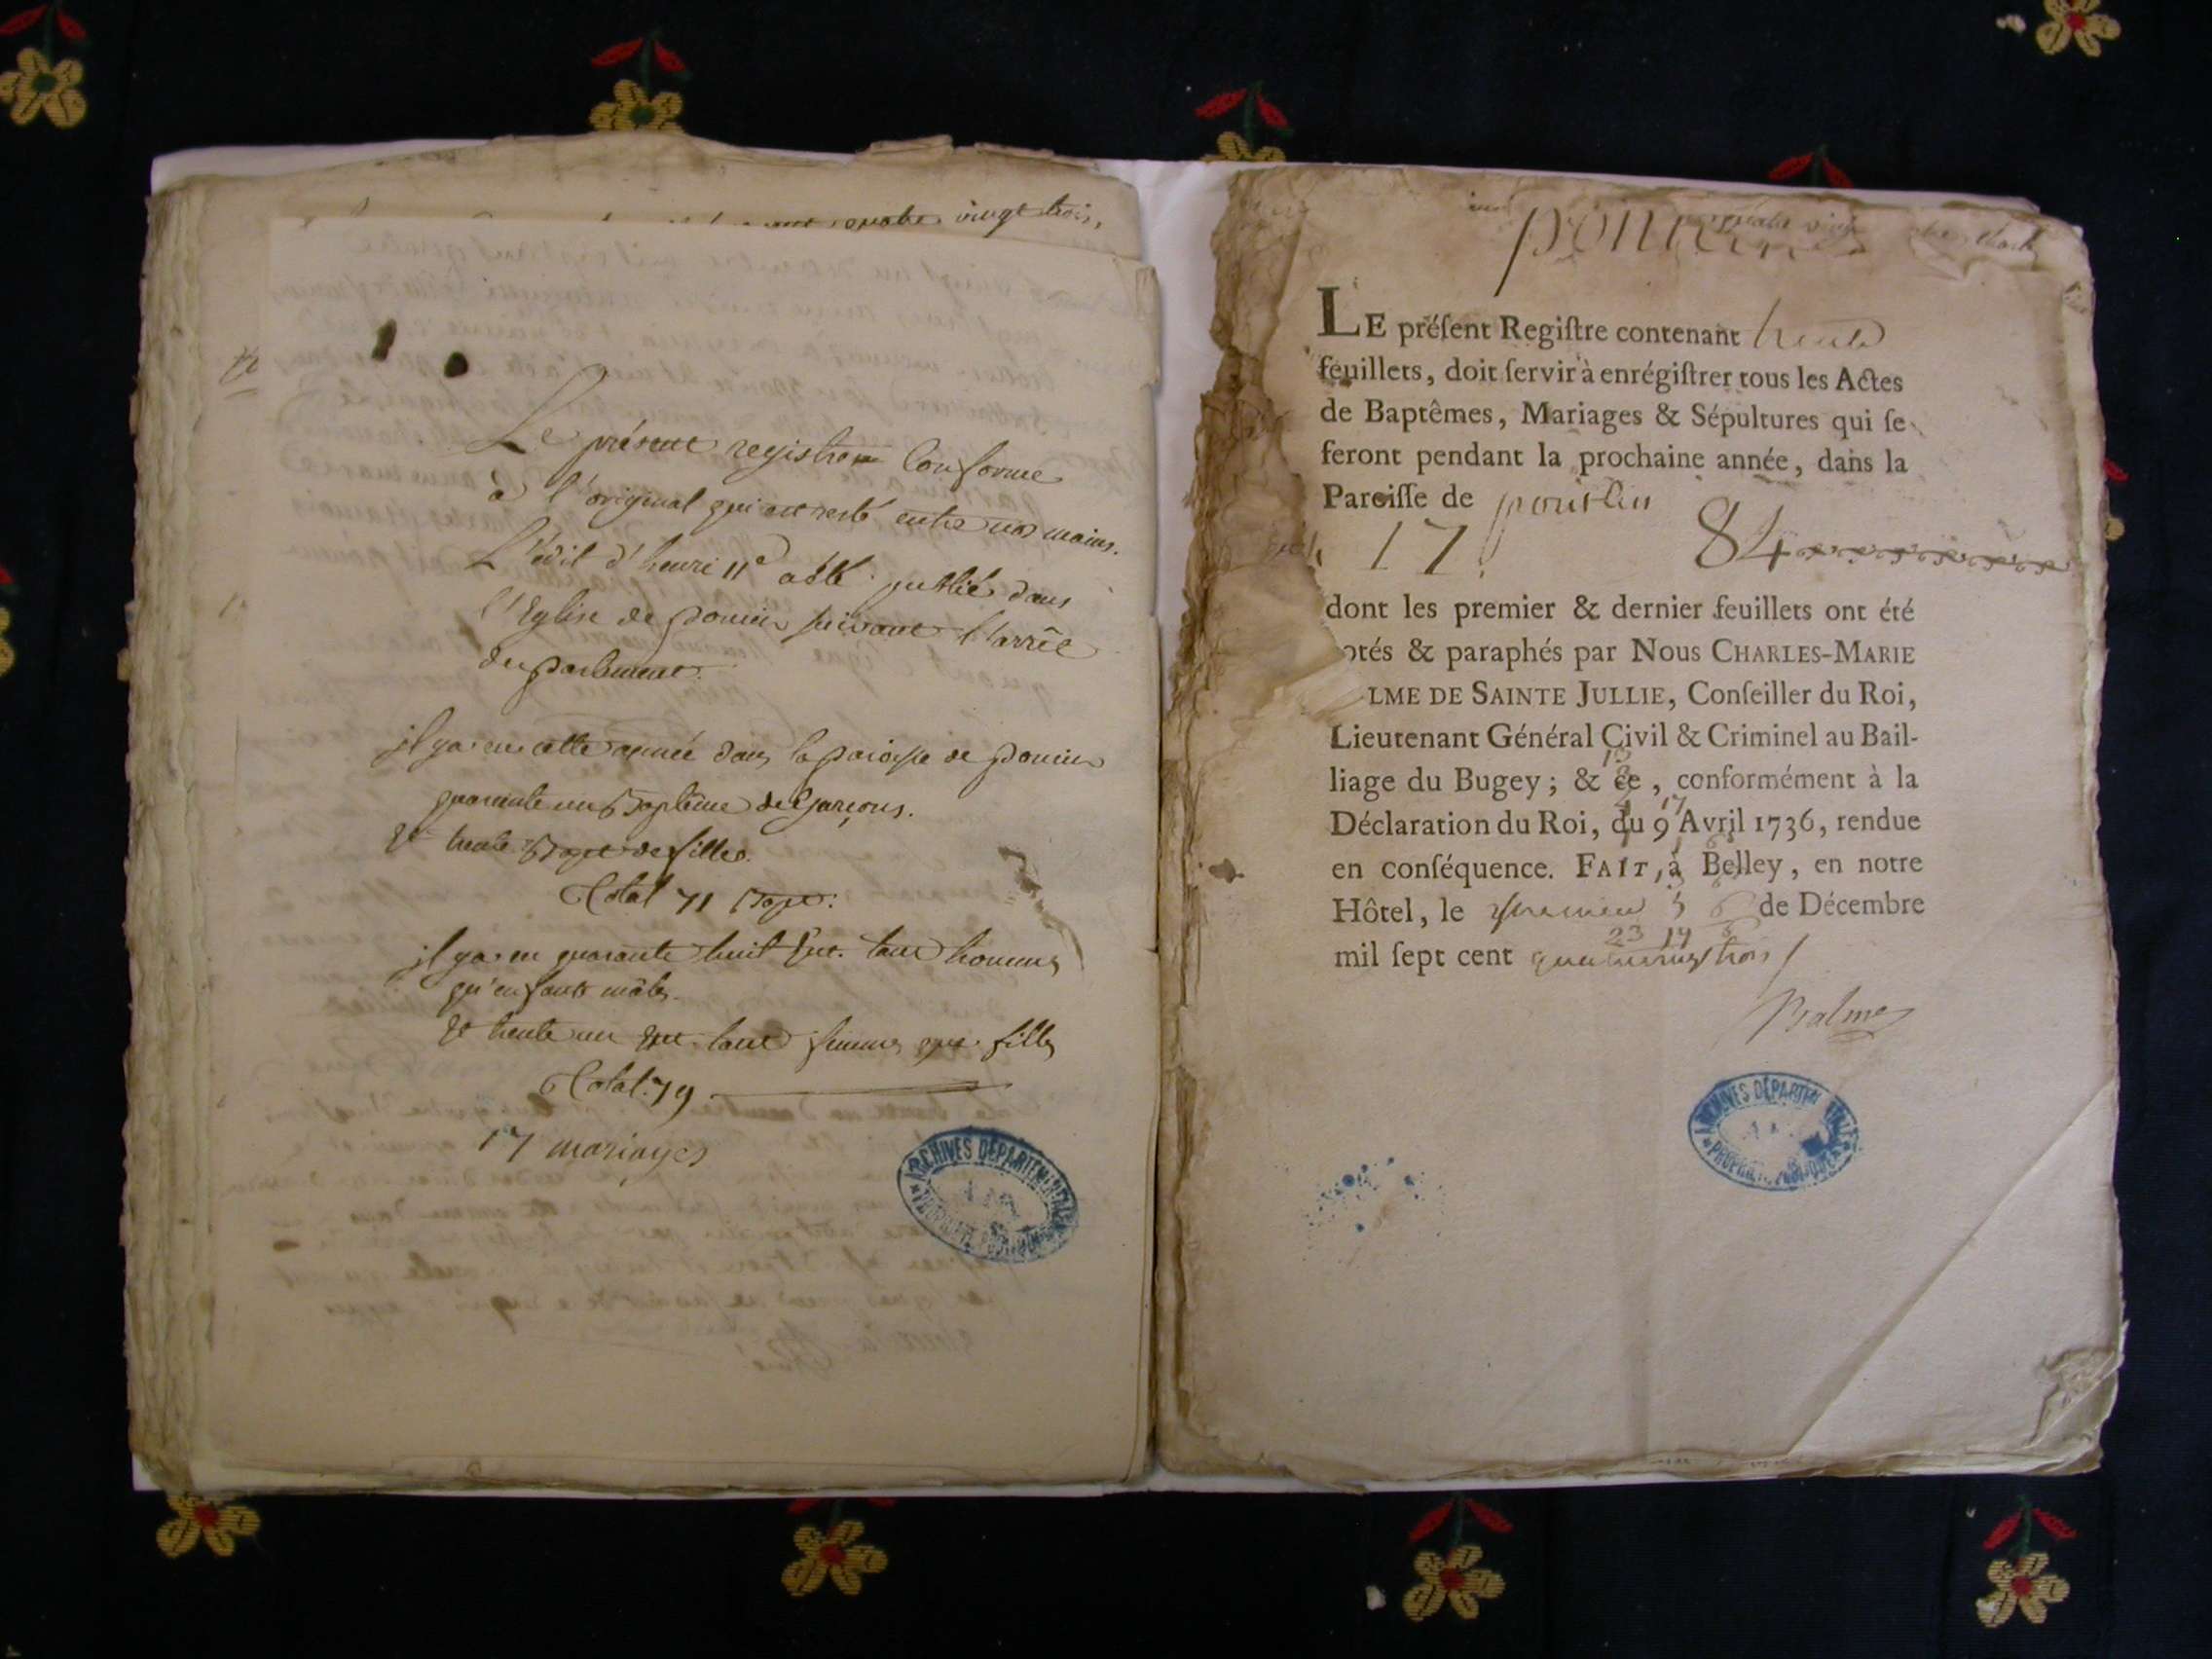 quatre vingt trois,
Le présent registre Conforme
à l'original qui est resté entre nos mains.
L'édit d'henri 11e a été publié dans
l'Eglise de poncin suivant l'arrêt
du parlement.
il y a eu cette année dans la paroisse de poncin
quarante un Baptême de Garçons.
Et trente Bapt. de filles.
Total 71 Bapt.
il y a eu quarante huit tant hommes
qu'enfants mâles.
Et trente un tant femmes que filles
Total. 79
17 mariages
ARCHIVES DÉPARTEMENTALES
LE préſent Regiſtre contenant trente
feuillets, doit ſervir à enrégiſtrer tous les Actes
de Baptêmes, Mariages & Sépultures qui ſe
feront pendant la prochaine année, dans la
Paroiſſe de
17 84
dont les premier & dernier feuillets ont été
otés & paraphés par Nous CHARLES-MARIE
LME DE SAINTE JULLIE, Conſeiller du Roi,
Lieutenant Général Civil & Criminel au Bail-
liage du Bugey; & ce, conformément à la
Déclaration du Roi, du 9 Avril 1736, rendue
en conſéquence. FAIT, à Belley, en notre
Hôtel, le premier de Décembre
23 19
mil ſept cent quatrevingt trois
Balme
ARCHIVES DÉPARTEMENTALES